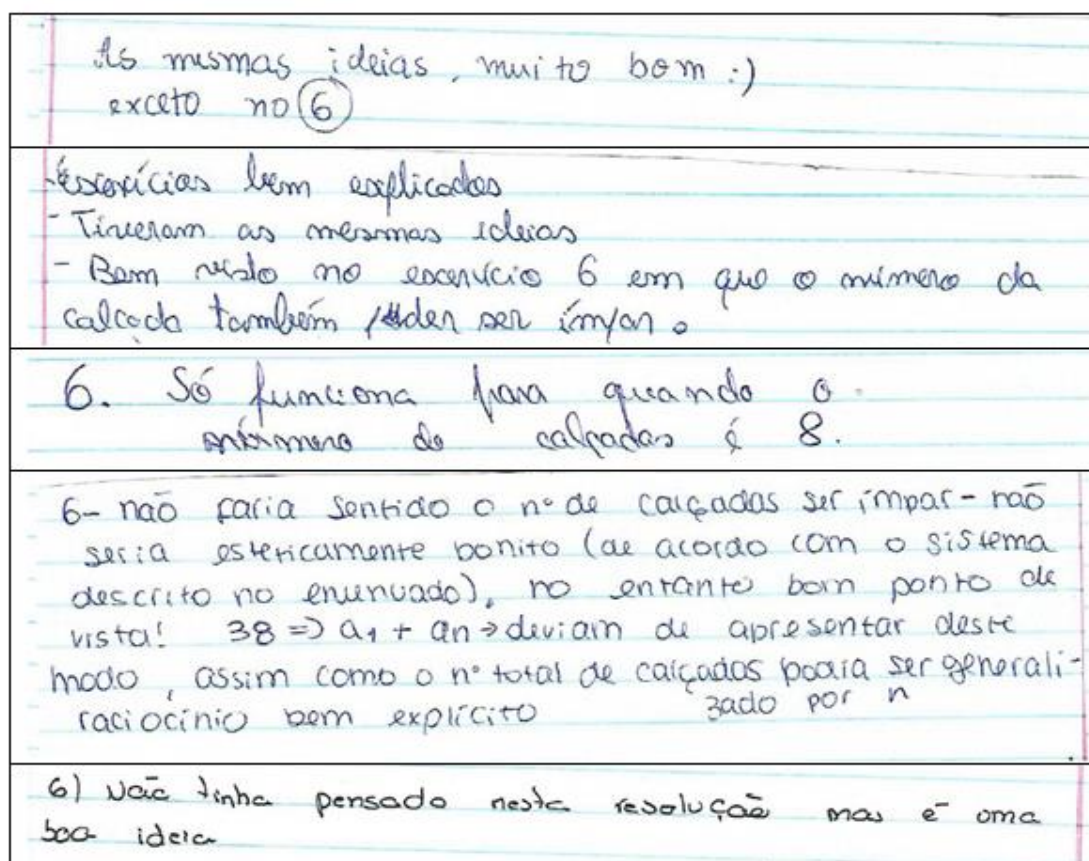 As mesmas ideias, muito bom :)
exceto no 6
-Exercícios bem explicados
- Tiveram as mesmas ideias
- Bem visto no exercício 6 em que o número da
calçada também poder ser ímpar.
6. Só funciona para quando o
número de calçadas é 8.
6- não faria sentido o nº de calçadas ser ímpar - não
seria estéticamente bonito (de acordo com o sistema
descrito no enunciado), no entanto bom ponto de
vista! 38 => a₁ + an → deviam de apresentar deste
modo, assim como o nº total de calçadas podia ser generali-
zado por n
raciocínio bem explícito
6) Não tinha pensado nesta resolução mas é uma
boa ideia